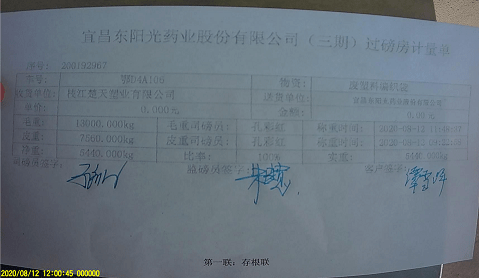 宜昌东阳光药业股份有限公司（三期）过磅房计量单
序号: 200192967
车号: 鄂D4A106 物资: 废塑料编织袋
收货单位: 枝江楚天塑业有限公司 送货单位: 宜昌东阳光药业股份有限公司
单价: 0.000元 金额: 0.000元
毛重: 13000.000kg 毛重司磅员: 孔彩红 称重时间:
皮重: 7560.000kg 皮重司磅员: 孔彩红 称重时间:
净重: 5440.000kg 比率: 100% 实重: 5440.000kg
司磅员签字: 监磅员签字: 客户签字:
第一联: 存根联
2020/08/12 12:00:45 000000